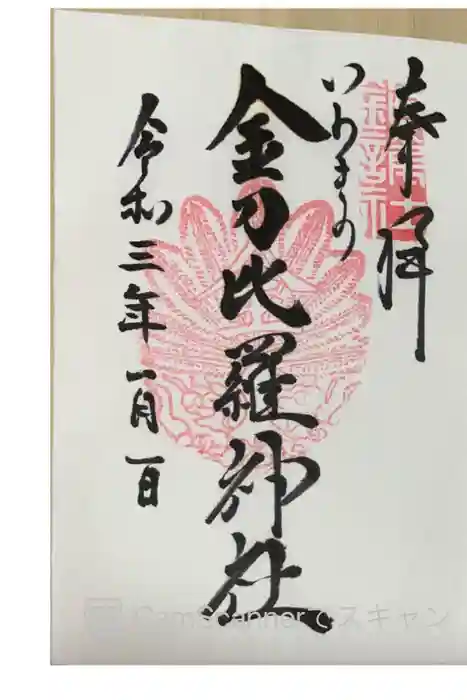 奉拝
いりまの
金刀比羅神社
令和三年一月一日
CamScannerでスキャン